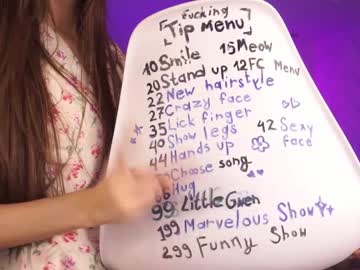 fucking
Tip Menu
10 Smile 15 Meow
20 Stand up 12 FC Menu
22 New hairstyle
27 Crazy face
35 Lick finger
40 Show legs 42 Sexy face
44 Hands up
Choose song
Hug
99 Little Gwen
199 Marvelous Show
299 Funny Show